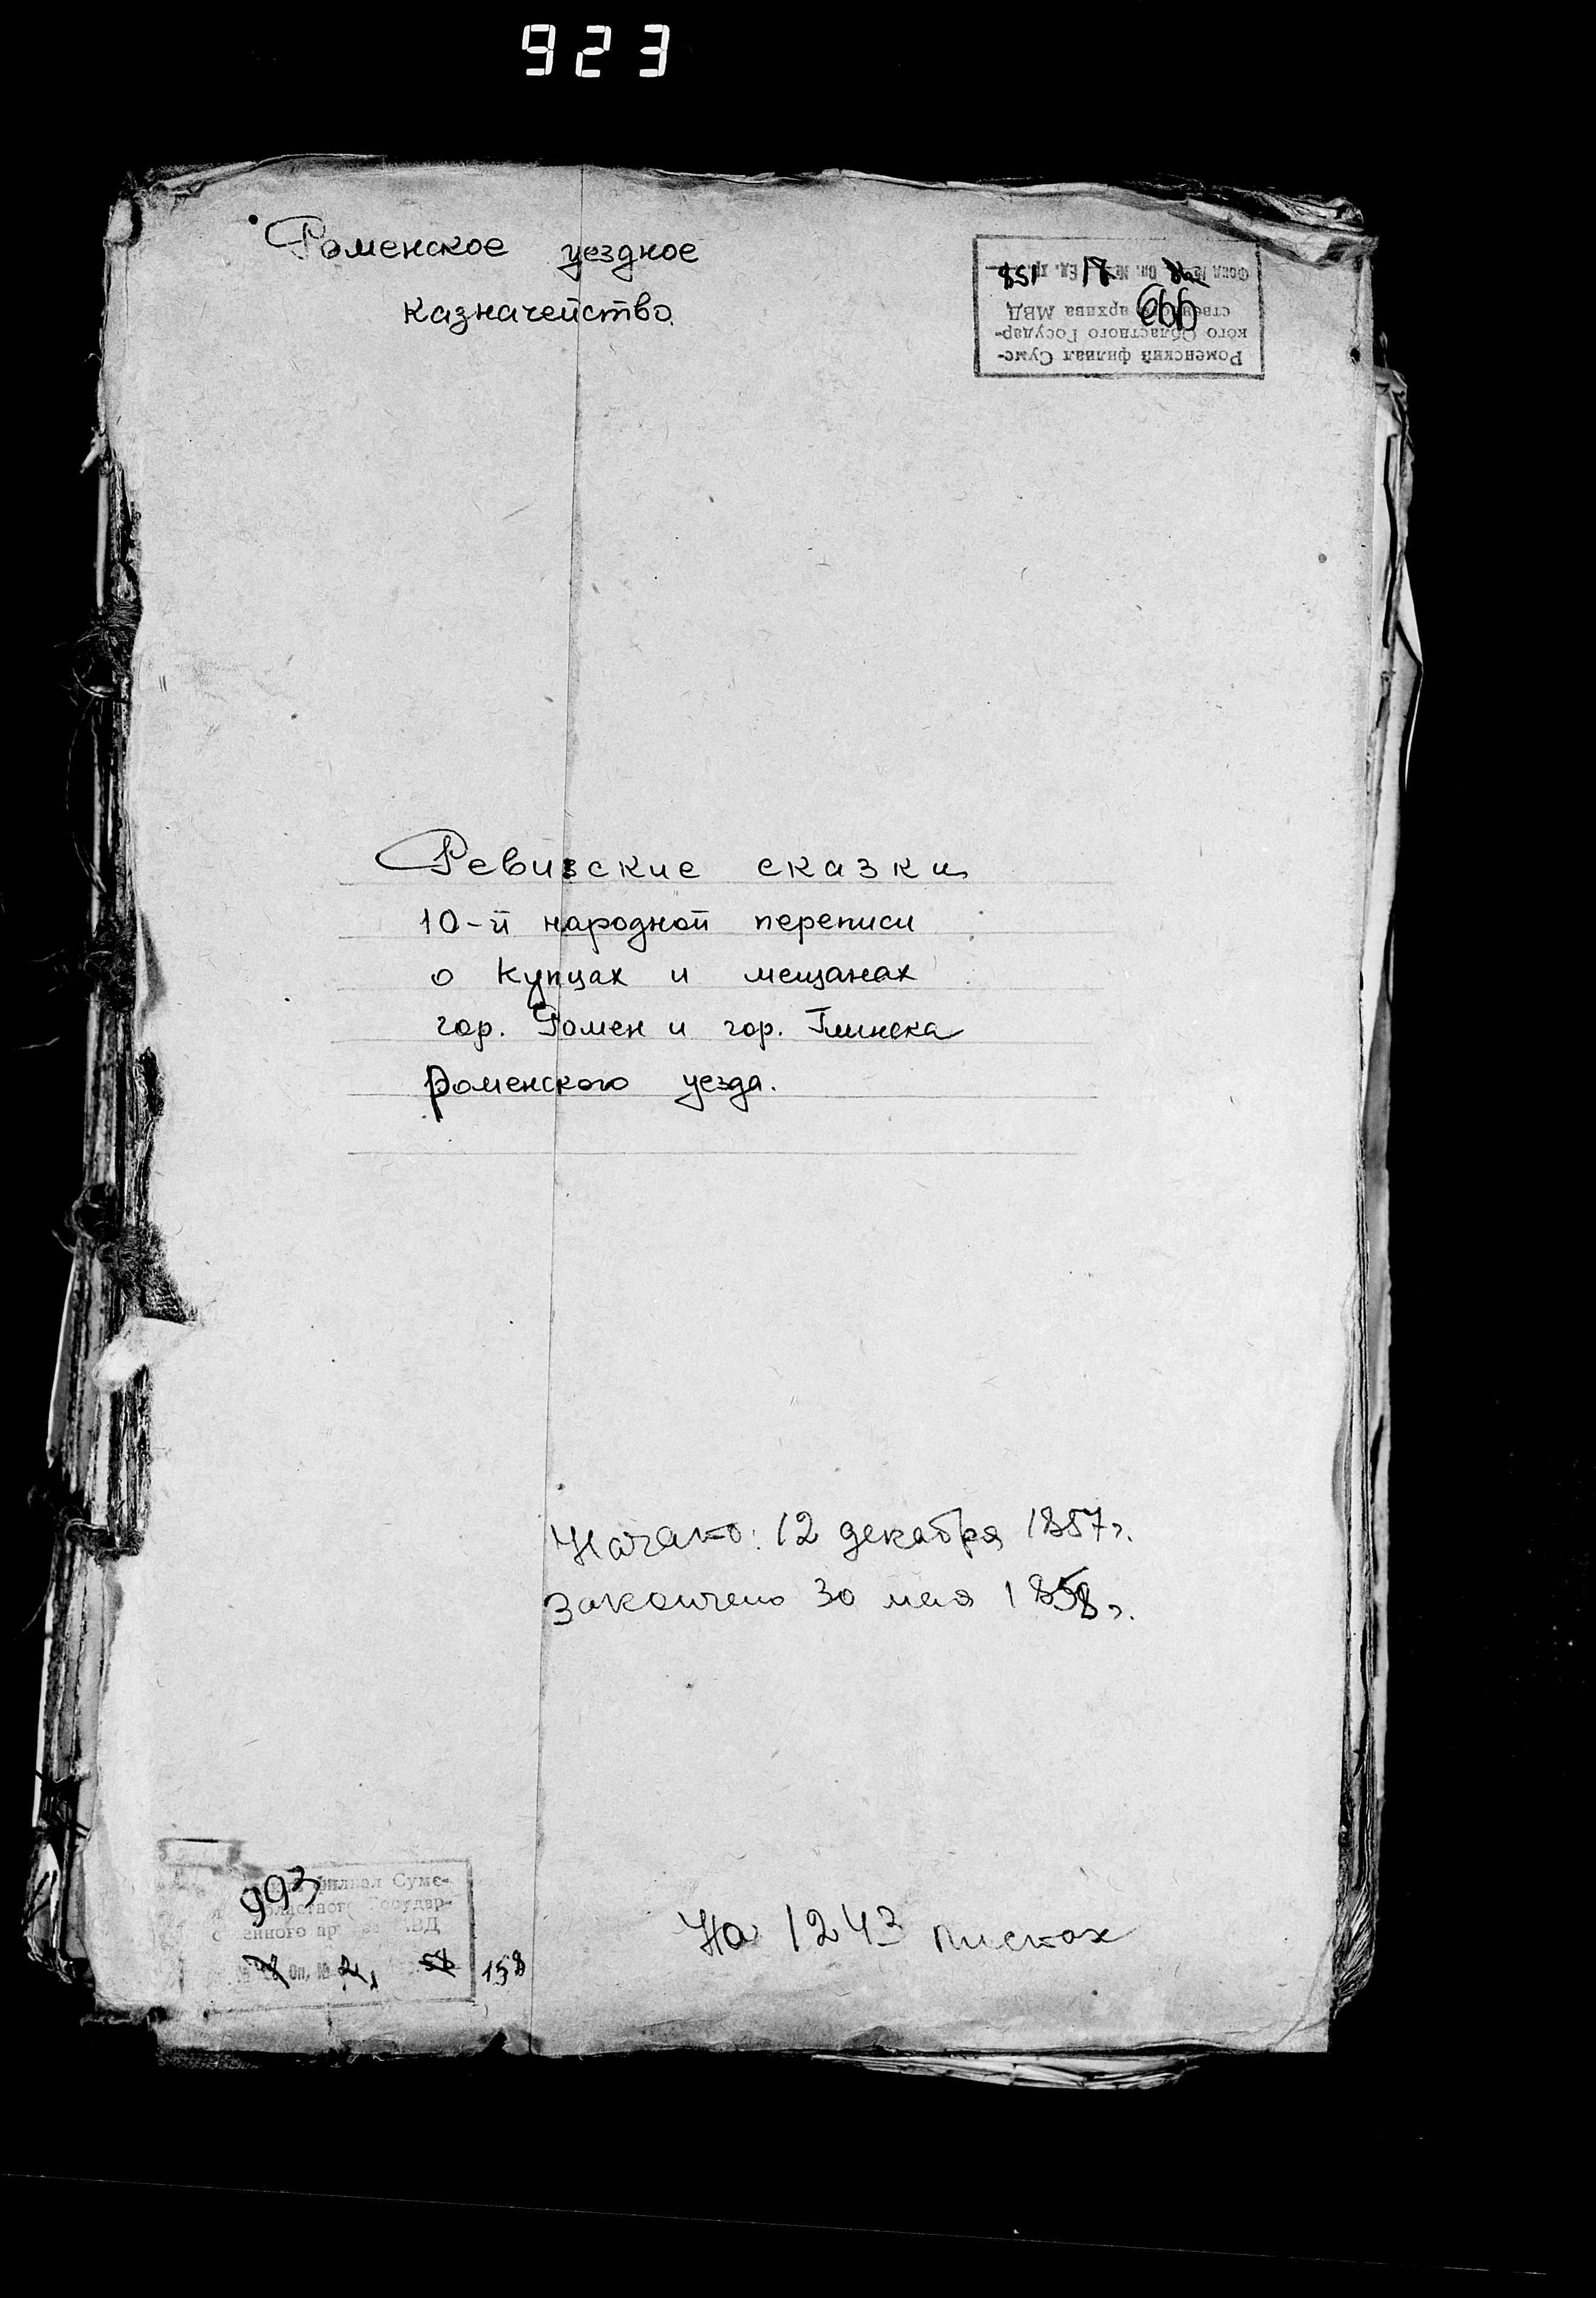 923
Роменское уездное
казначейство.
Роменский филиал Сумс-
кого Областного Государ-
ственного архива МВД
993
Фонд № Оп. № Ед. хр. 158
Ревизские сказки
10-й народной переписи
о купцах и мещанах
гор. Ромен и гор. Глинска
Роменского уезда.
Начато: 12 декабря 1857 г.
Закончено 30 мая 1858 г.
993
филиал Сумс-
бластного Государ-
енного ар МВД
Оп. № 158
На 1243 листах